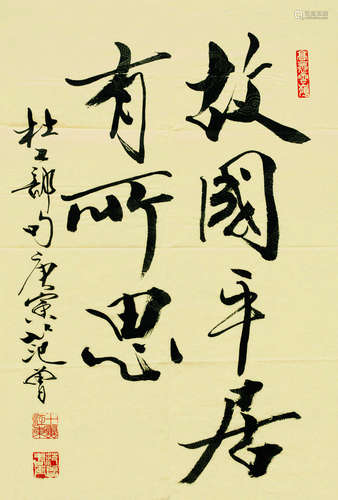 故國平居
有所思
杜工部句庚寅范曾